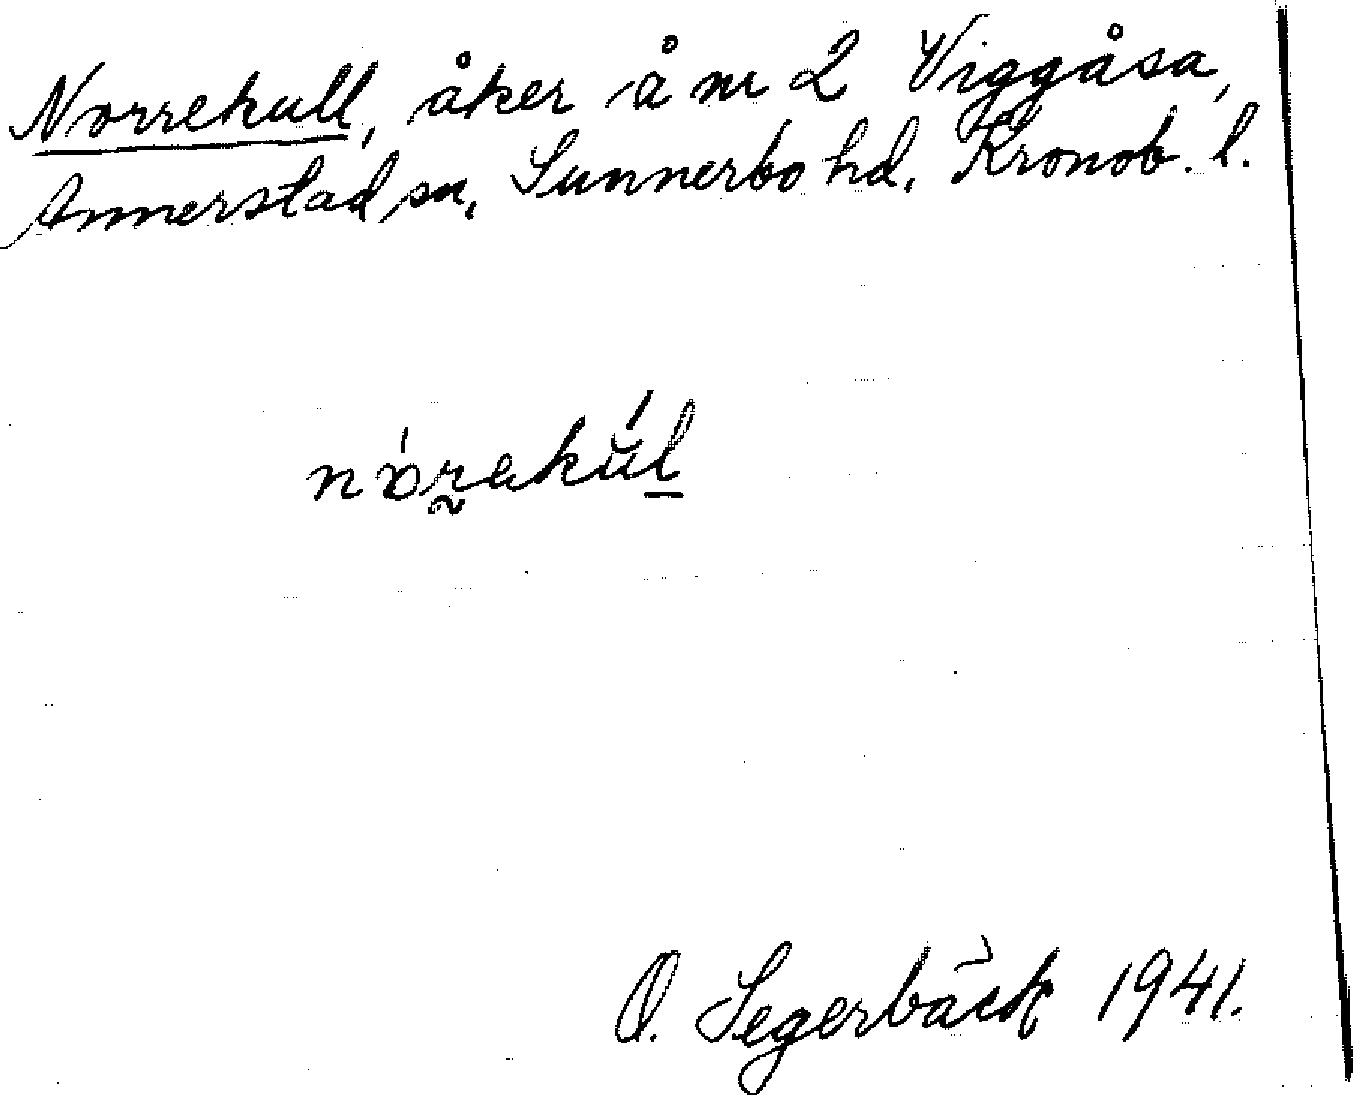 Norrekull, åker å nr 2 Viggåsa,
Annerstad sn, Sunnerbo hd, Kronob. l.
nórakúl
O. Segerbäck 1941.